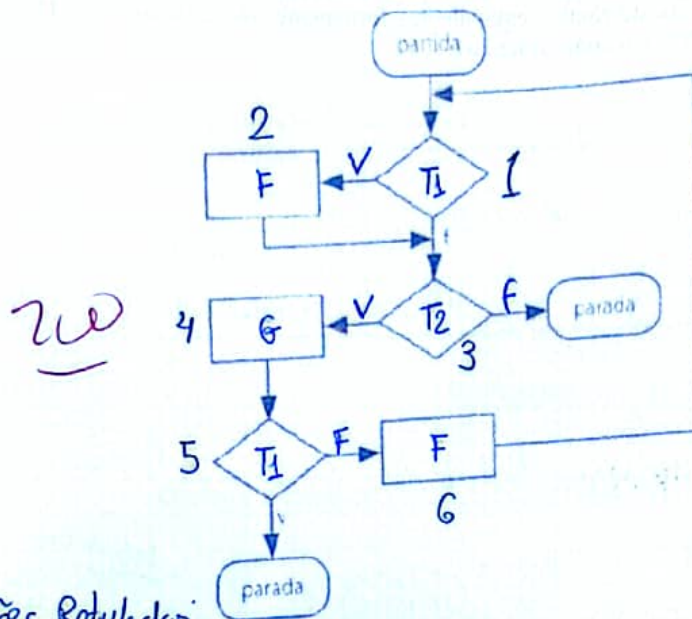 partida
2
V
F
T1
1
f
V
F
4
G
T2
3
parada
5
T1
F
F
6
v
parada